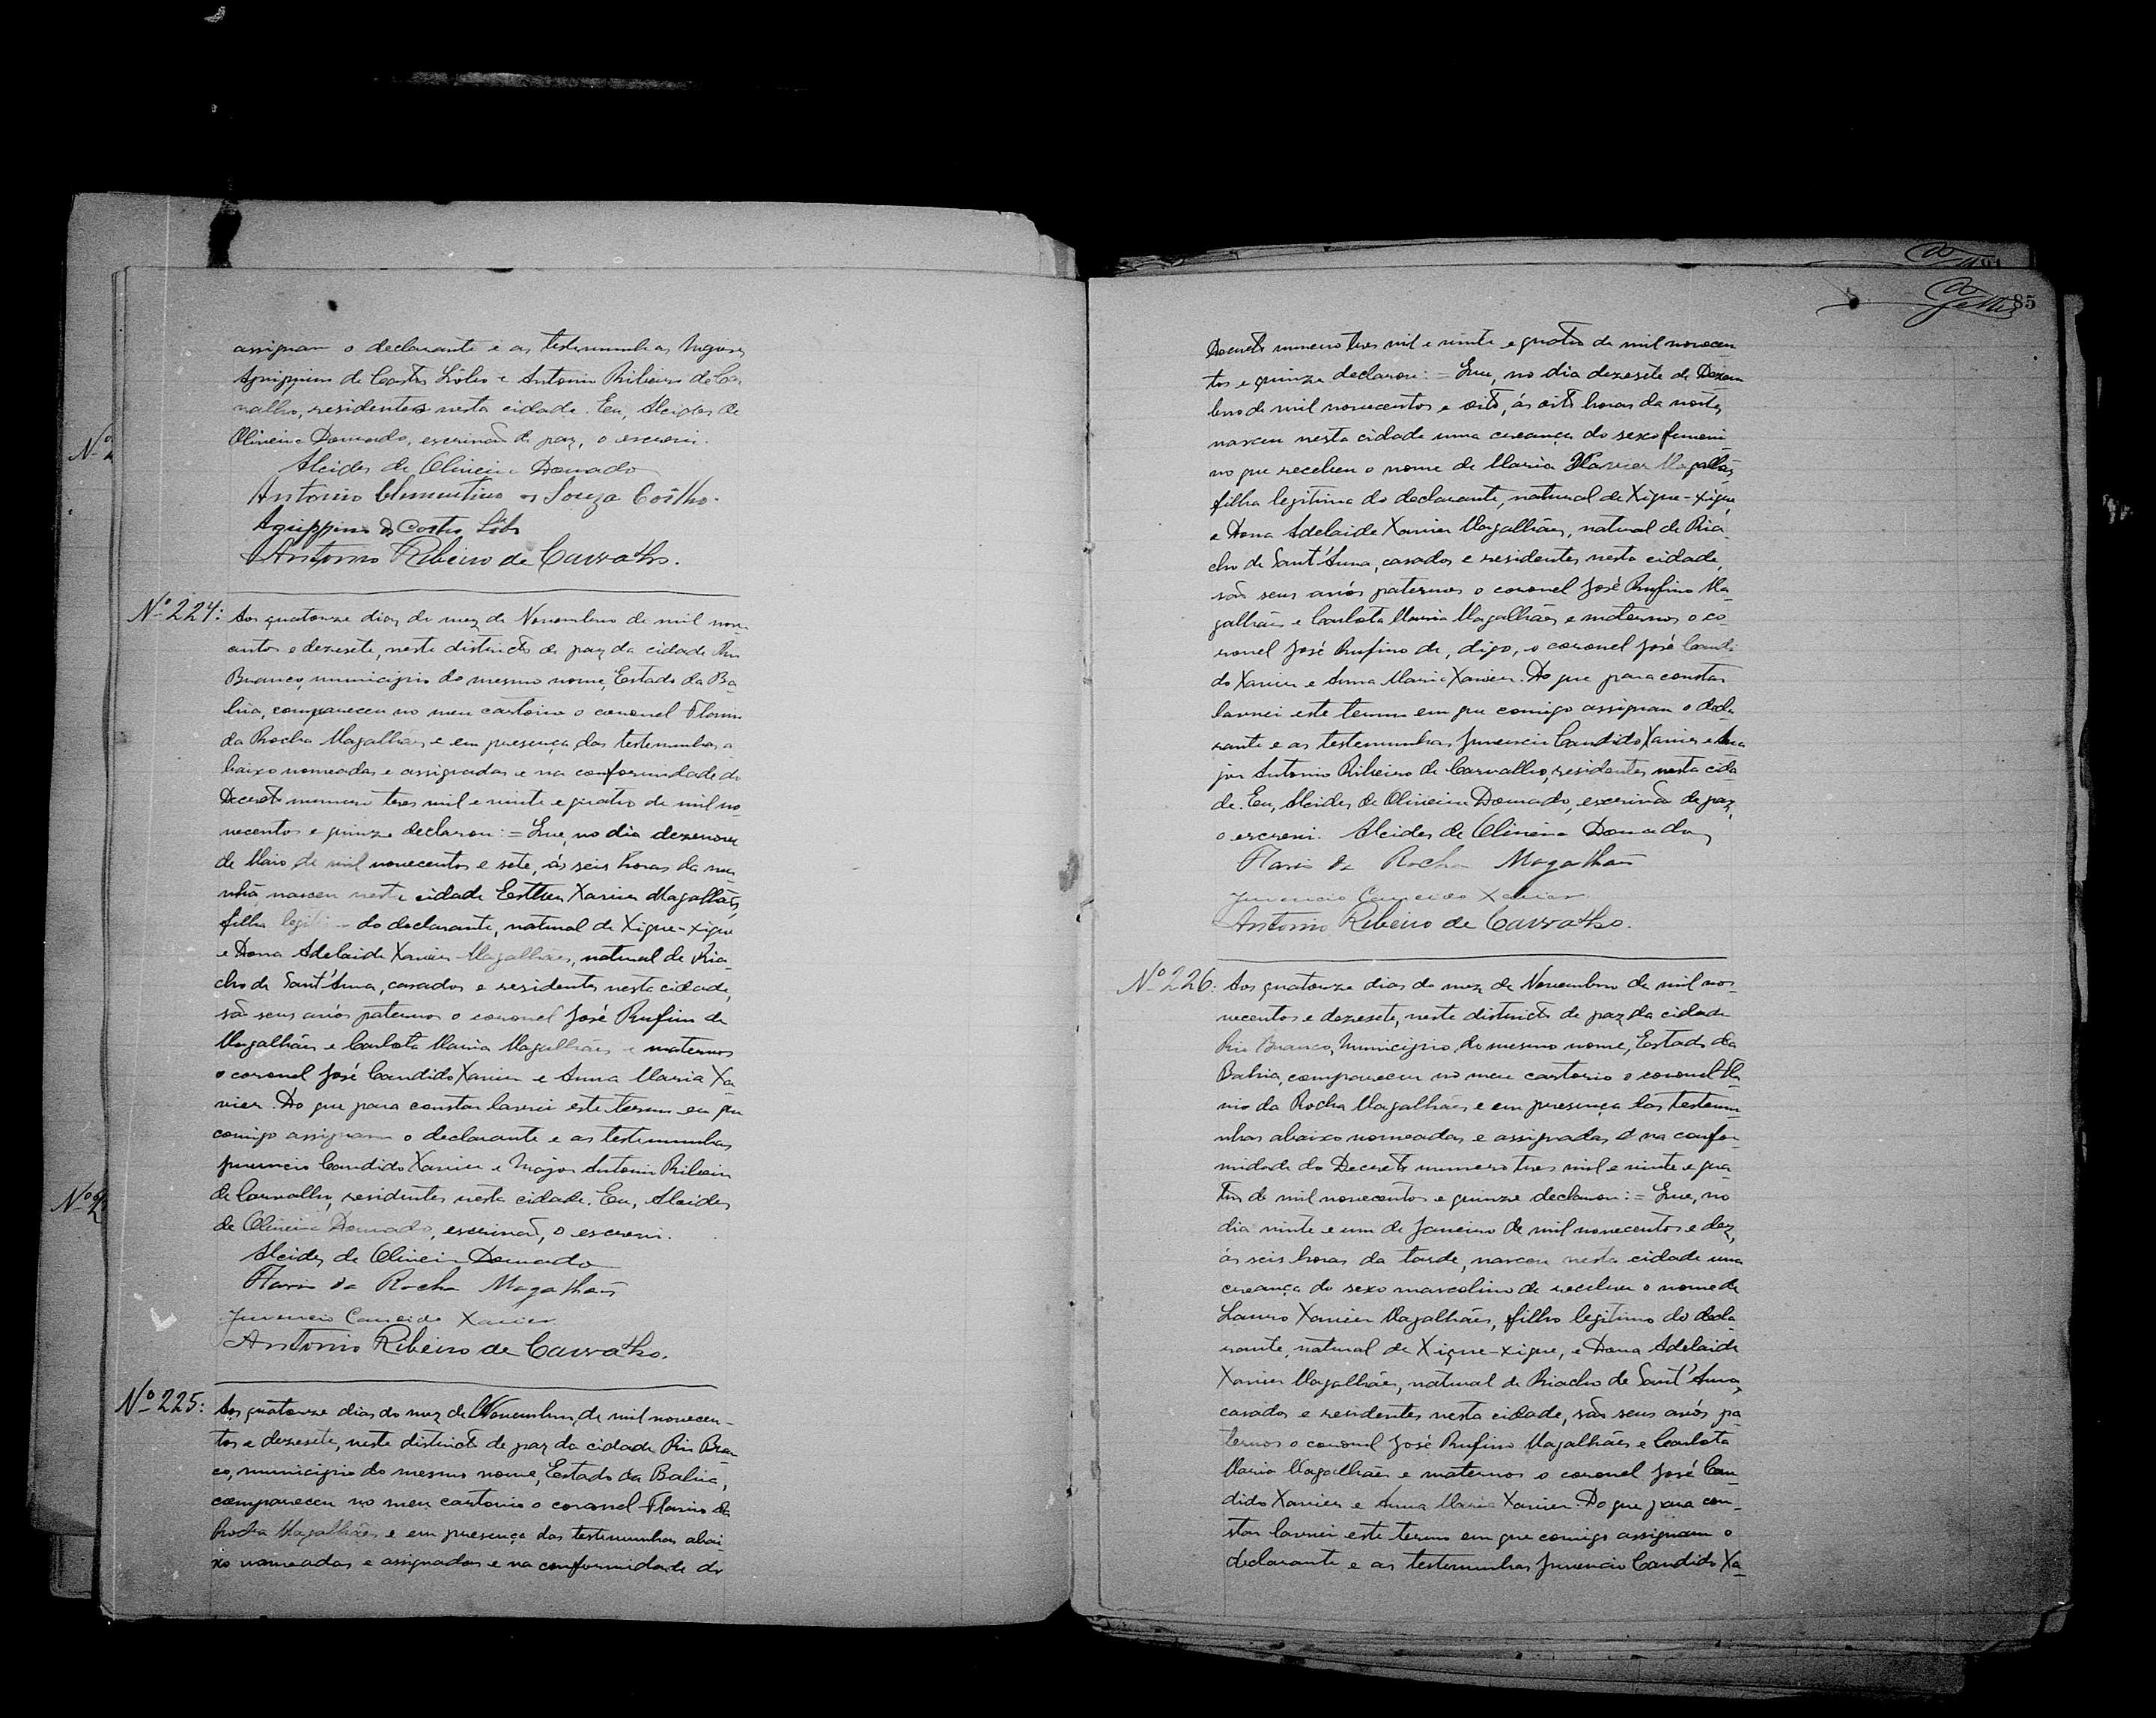 assignam o declarante e as testemunhas
Agrippino de Costa Lôbo e Antonio Ribeiro de Car
valho, residentes nesta cidade. Eu, Alcides de
Oliveira Dourado, escrivão de paz, o escrevi.
Alcides de Oliveira Dourado
Antonio Clementino de Souza Coêlho.
Agrippino de Costa Lôbo
Antonio Ribeiro de Carvalho.
Nº 224: Aos quatorze dias do mez de Novembro de mil nove
centos e dezesete, neste districto de paz da cidade Rio
Branco, municipio do mesmo nome, Estado da Ba-
hia, compareceu no meu cartorio o coronel Flavio
da Rocha Magalhães e em presença das testemunhas a
baixo nomeadas e assignadas e na conformidade do
Decreto numero tres mil e vinte e quatro de mil no
vecentos e quinze declarou:= Que, no dia dezenove
de Maio de mil novecentos e sete, ás seis horas da ma
nhã nasceu nesta cidade Esther Xavier Magalhães,
filha legitima do declarante, natural de Xique-xique
e Dona Adelaide Xavier Magalhães, natural de Ria
cho de Sant'Anna, casados e residentes nesta cidade,
são seus avós paternos o coronel José Rufino de
Magalhães e Carlota Maria Magalhães e maternos
o coronel José Candido Xavier e Anna Maria Xa
vier. Do que para constar lavrei este termo em que
comigo assignam o declarante e as testemunhas
Juvencio Candido Xavier e Major Antonio Ribeiro
de Carvalho, residentes nesta cidade. Eu, Alcides
de Oliveira Dourado, escrivão, o escrevi.
Alcides de Oliveira Dourado
Flavio da Rocha Magalhães
Juvencio Candido Xavier
Antonio Ribeiro de Carvalho.
Nº 225: Aos quatorze dias do mez de Novembro de mil novecen-
tos e dezesete, neste districto de paz da cidade Rio Bran
co, municipio do mesmo nome, Estado da Bahia,
compareceu no meu cartorio o coronel Flavio da
Rocha Magalhães e em presença das testemunhas abai
xo nomeadas e assignadas e na conformidade do
85
Decreto numero tres mil e vinte e quatro de mil novecen
tos e quinze declarou:= Que, no dia dezesete de Dezem
bro de mil novecentos e oito, ás oito horas da noite,
nasceu nesta cidade uma creança do sexo femeni
no que recebeu o nome de Maria Xavier Magalhães,
filha legitima do declarante, natural de Xique-xique,
e Dona Adelaide Xavier Magalhães, natural de Ria
cho de Sant'Anna, casados e residentes nesta cidade,
são seus avós paternos o coronel José Rufino Ma
galhães e Carlota Maria Magalhães e maternos o co
ronel José Rufino de, digo, o coronel José Candi
do Xavier e Anna Maria Xavier. Do que para constar
lavrei este termo em que comigo assignam o decla
rante e as testemunhas Juvencio Candido Xavier e Ma
jor Antonio Ribeiro de Carvalho, residentes nesta cida
de. Eu, Alcides de Oliveira Dourado, escrivão de paz,
o escrevi. Alcides de Oliveira Dourado
Flavio da Rocha Magalhães
Juvencio Candido Xavier
Antonio Ribeiro de Carvalho.
Nº 226: Aos quatorze dias do mez de Novembro de mil no-
vecentos e dezesete, neste districto de paz da cidade
Rio Branco, Municipio do mesmo nome, Estado da
Bahia, compareceu no meu cartorio o coronel Fla
vio da Rocha Magalhães e em presença das testemu
nhas abaixo nomeadas e assignadas e na confor
midade do Decreto numero tres mil e vinte e qua
tro de mil novecentos e quinze declarou:= Que, no
dia vinte e um de Janeiro de mil novecentos e dez,
ás seis horas da tarde, nasceu nesta cidade uma
creança do sexo mascolino de recebeu o nome de
Lauro Xavier Magalhães, filho legitimo do decla
rante, natural de Xique-xique, e Dona Adelaide
Xavier Magalhães, natural de Riacho de Sant'Anna,
casados e residentes nesta cidade, são seus avós pa
ternos o coronel José Rufino Magalhães e Carlota
Maria Magalhães e maternos o coronel José Can
dido Xavier e Anna Maria Xavier. Do que para con-
star lavrei este termo em que comigo assignam o
declarante e as testemunhas Juvencio Candido Xa